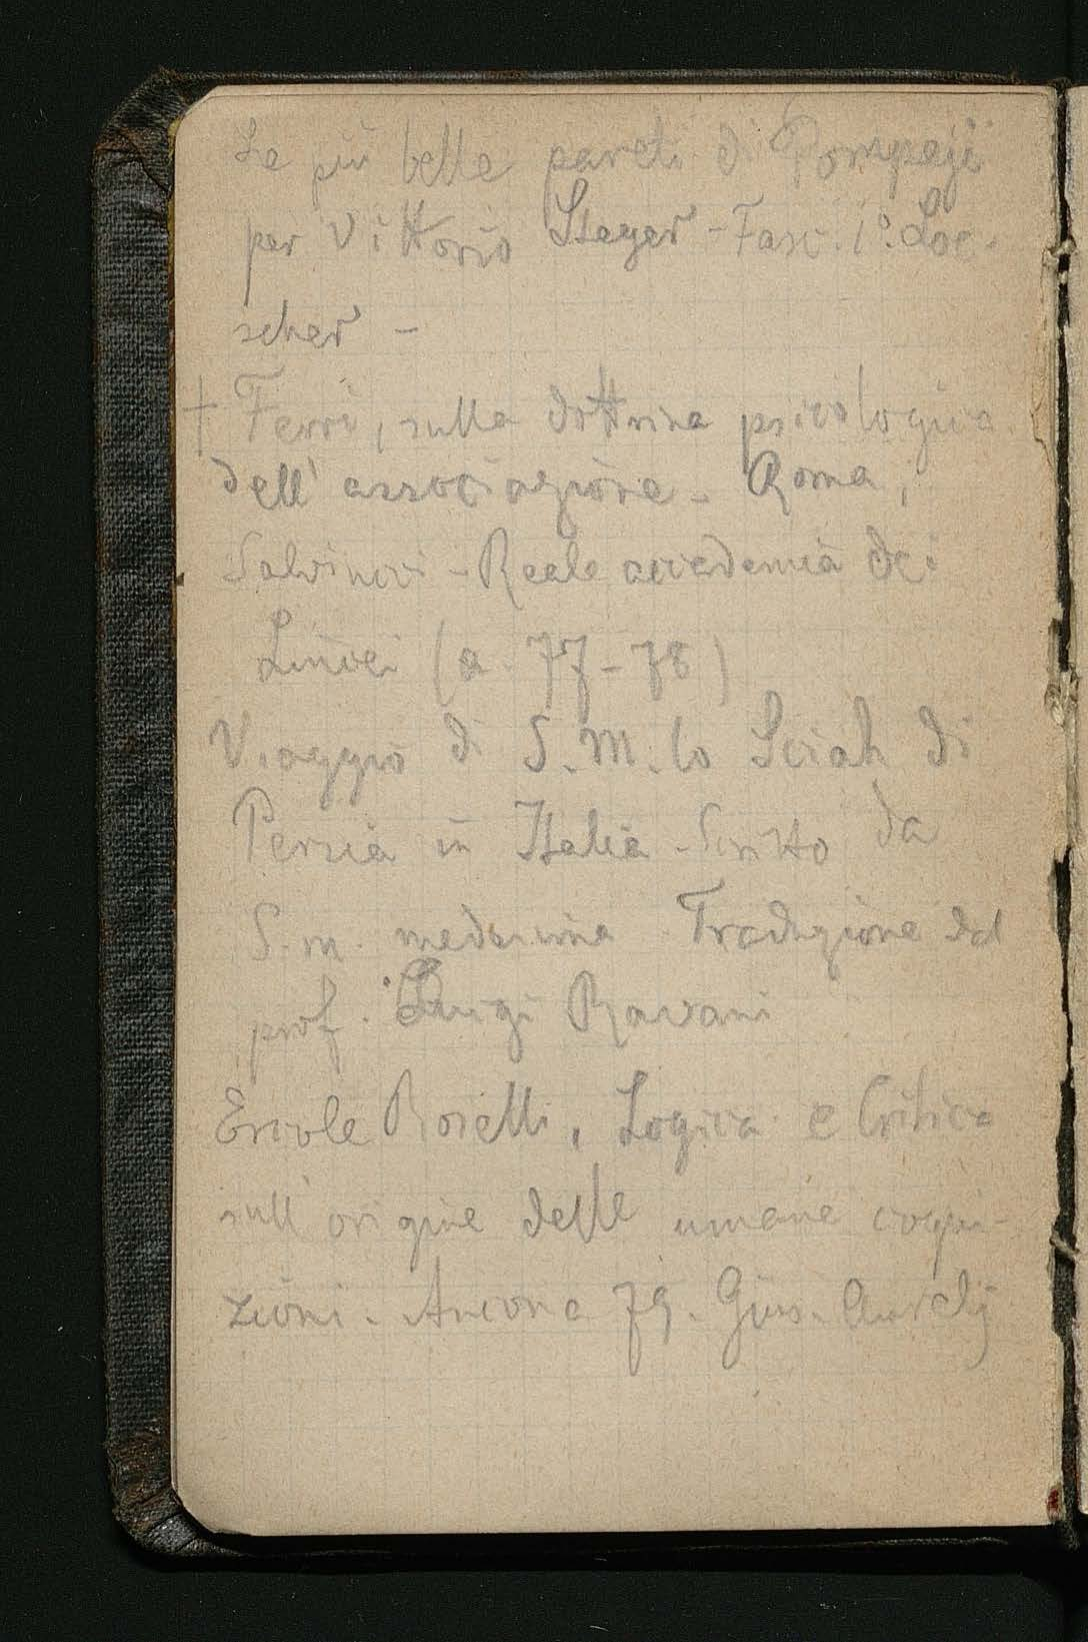 Le più belle pareti di Pompeji
per Vittorio Steger - Fasc. 1º. Loe-
scher -
+ Ferri, sulla dottrina psicologica
dell'associazione - Roma,
Salviucci - Reale accademia dei
Lincei (a. 77-78)
Viaggio di S. M. lo Sciah di
Persia in Italia - Scritto da
S. m. medesima. Traduzione del
prof. Luigi
Ercole Roselli, Logica e Critica
sull'origine delle umane cogni-
zioni. Ancona 79. Gius. Aurelj